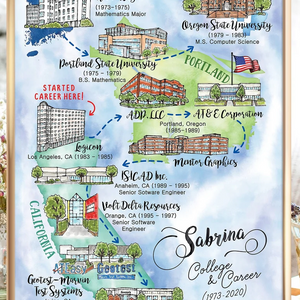 (1973-1975)
Mathematics Major
Oregon State University
(1979 - 1983)
M.S. Computer Science
Portland State University
(1975 - 1979)
B.S. Mathematics
PORTLAND
STARTED
CAREER HERE!
ADP, LLC
AT&E Corporation
Portland, Oregon
(1985-1989)
Logicon
Los Angeles, CA (1983 - 1985)
Mentor Graphics
ISICAD Inc.
Anaheim, CA (1989 - 1995)
Senior Software Engineer
VoltDelta Resources
Orange, CA (1995 - 1997)
Senior Software
Engineer
CALIFORNIA
Sabrina
College
& Career
(1973-2020)
Geotest
Geotest-Marvin
Test Systems